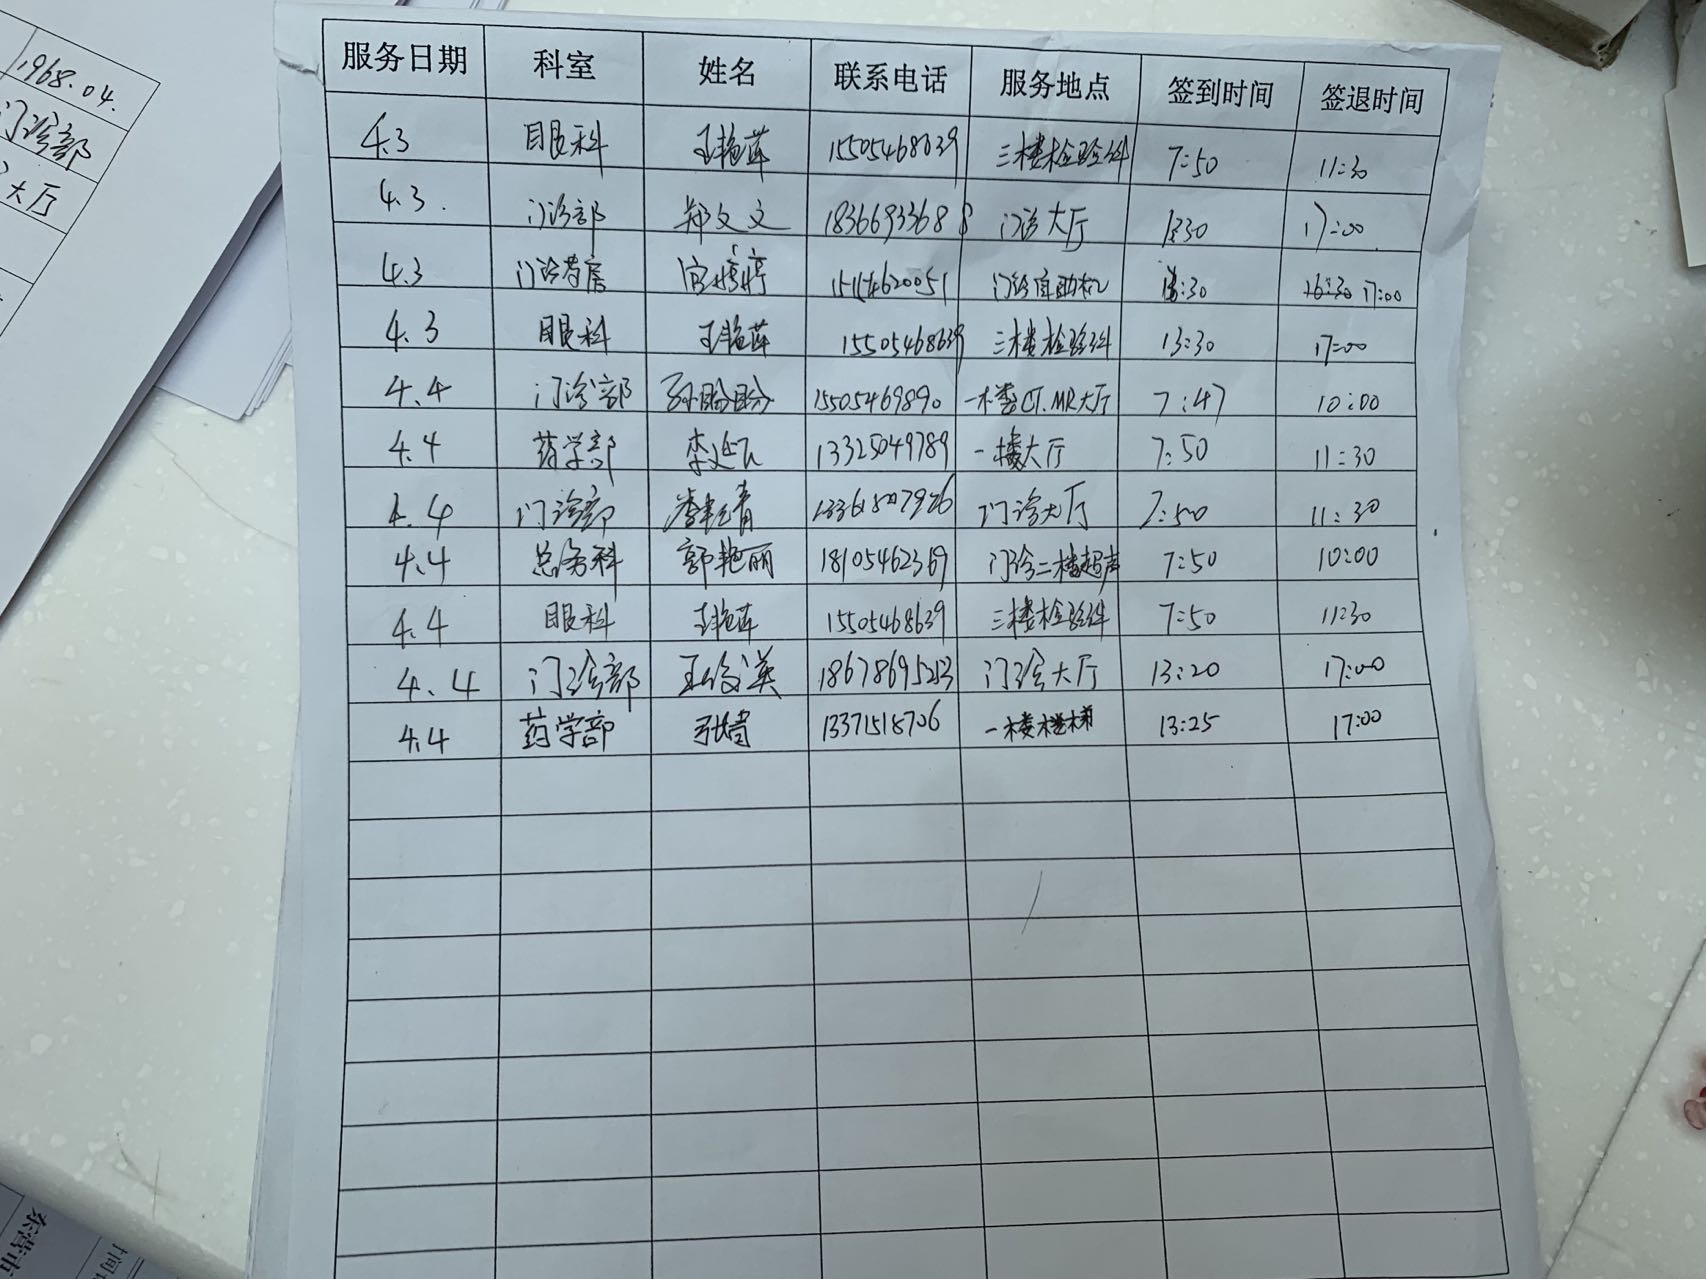 1968.04.
门诊部
大厅
服务日期 科室 姓名 联系电话 服务地点 签到时间 签退时间
4.3 眼科 王艳萍 15505468639 三楼检验科 7:50 11:30
4.3. 门诊部 郑文文 18366933688 门诊大厅 13:30 17:00
4.3 门诊药房 宫婷婷 15154620051 门诊自助机 13:30 16:30 17:00
4.3 眼科 王艳萍 15505468639 三楼检验科 13:30 17:00
4.4 门诊部 孙盼盼 15505469890 一楼CT.MR大厅 7:47 10:00
4.4 药学部 13325049789 一楼大厅 7:50 11:30
4.4 门诊部 门诊大厅 7:50 11:30
4.4 总务科 郭艳丽 18105462369 门诊二楼超声 7:50 10:00
4.4 眼科 王艳萍 15505468639 三楼检验科 7:50 11:30
4.4 门诊部 王俊英 18678695213 门诊大厅 13:20 17:00
4.4 药学部 张婧 13371518706 一楼楼梯 13:25 17:00
东营市
时间